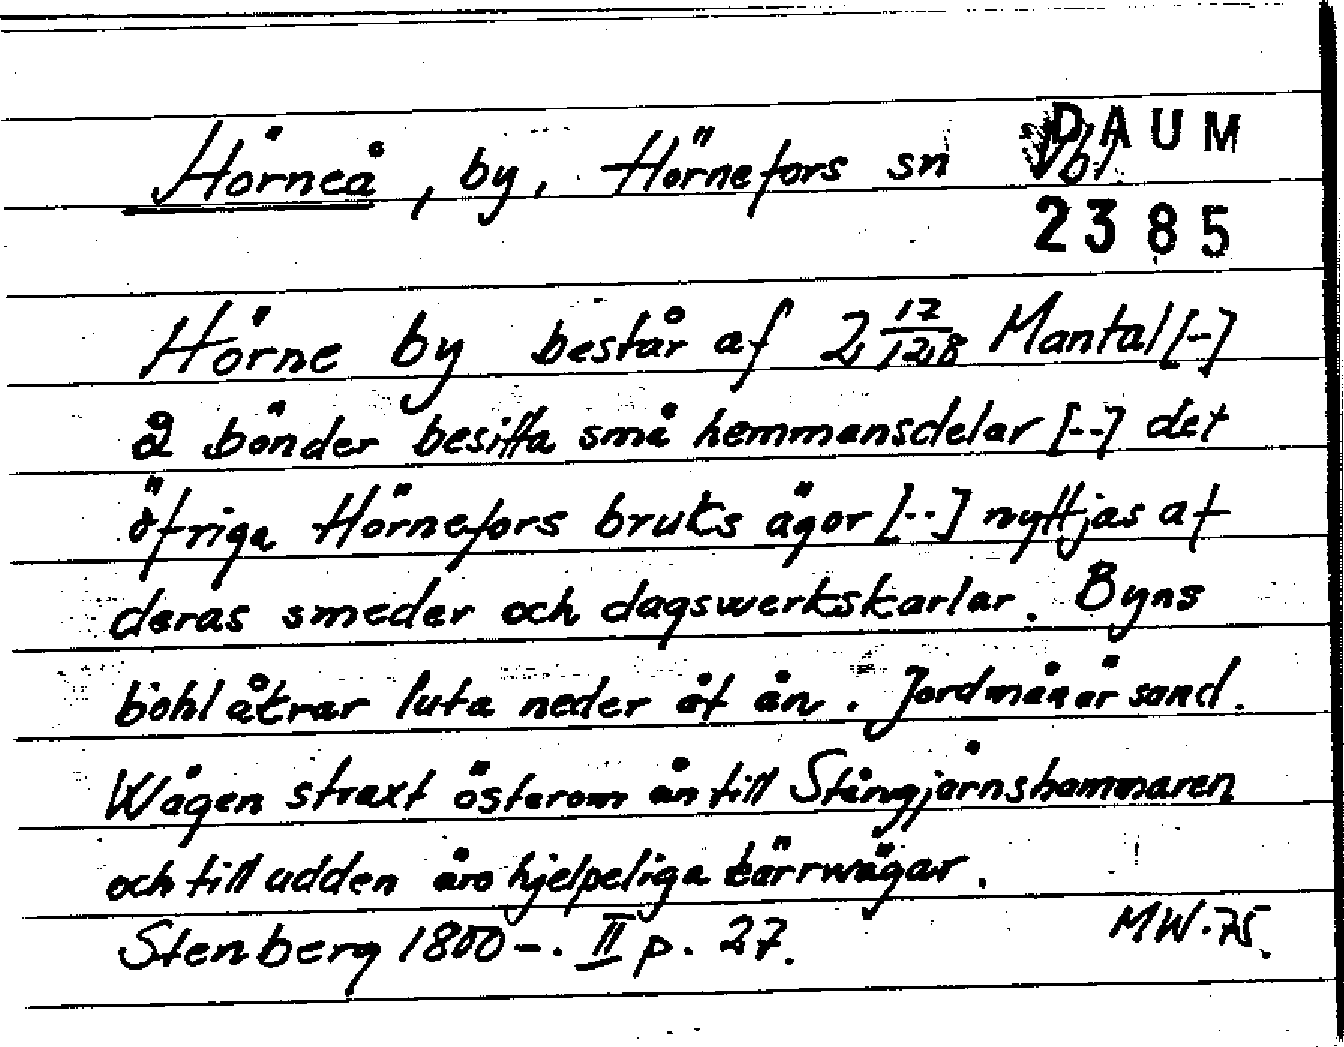 Hörneå, by, Hörnefors sn Vbt.
DAUM
2385
Hörne by består af 2 17/128 Mantal [--]
2 bönder besitta små hemmansdelar [--] det
öfriga Hörnefors bruks ägor [--] nyttjas af
deras smeder och dagswerkskarlar. Byns
bohlåkrar luta neder åt ån. Jordmån är sand.
Wägen straxt österom ån till Stångjärnshammaren
och till udden äro hjelpeliga kärrwägar.
Stenberg 1800-. II p. 27. MW. 75.